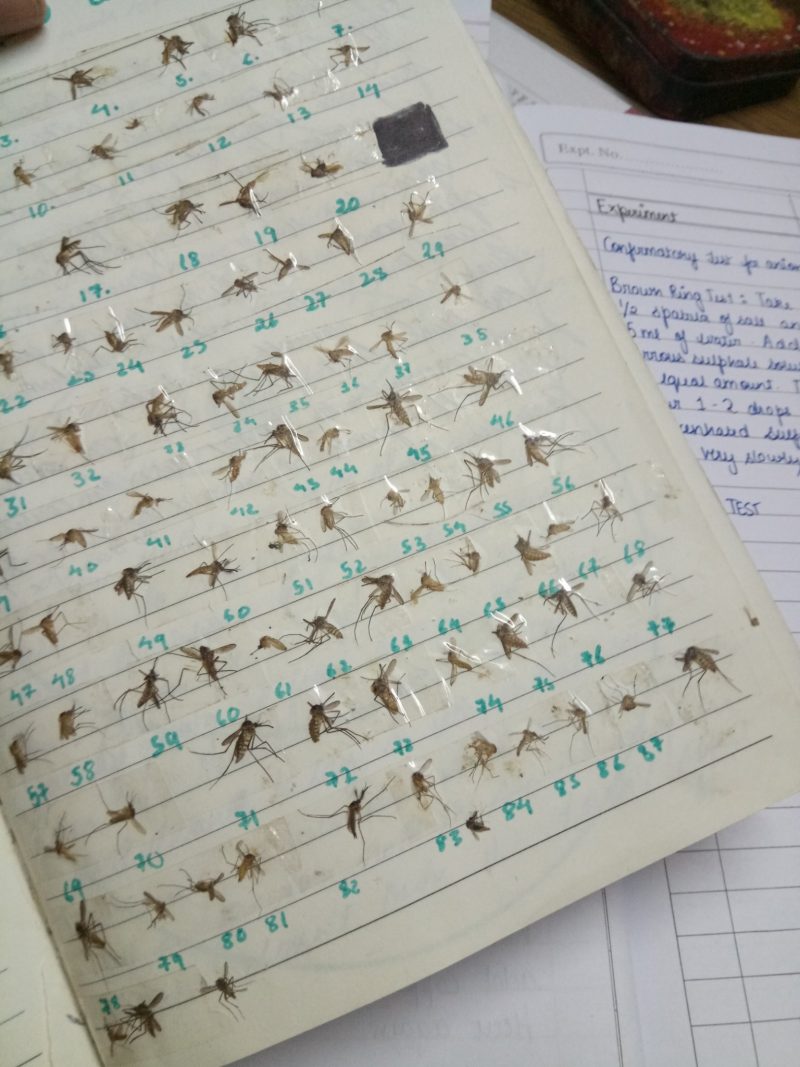 3. 4. 5. 6. 7.
10. 11 12 13 14
17. 18 19 20
22 23 24 25 26 27 28 29
31 32 33 34 35 36 37 35
40 41 42 43 44 45 46
47 48 49 50 51 52 53 54 55 56
57 58 59 60 61 62 63 64 65 66 67 68
69 70 71 72 73 74 75 76 77
78 79 80 81 82 83 84 85 86 87
Expt. No.
Experiment
Confirmatory test for
Brown Ring Test: Take
1/2 spatula of salt
5 ml of water. Add
sulphate
equal amount.
1-2 drops
very slowly
TEST